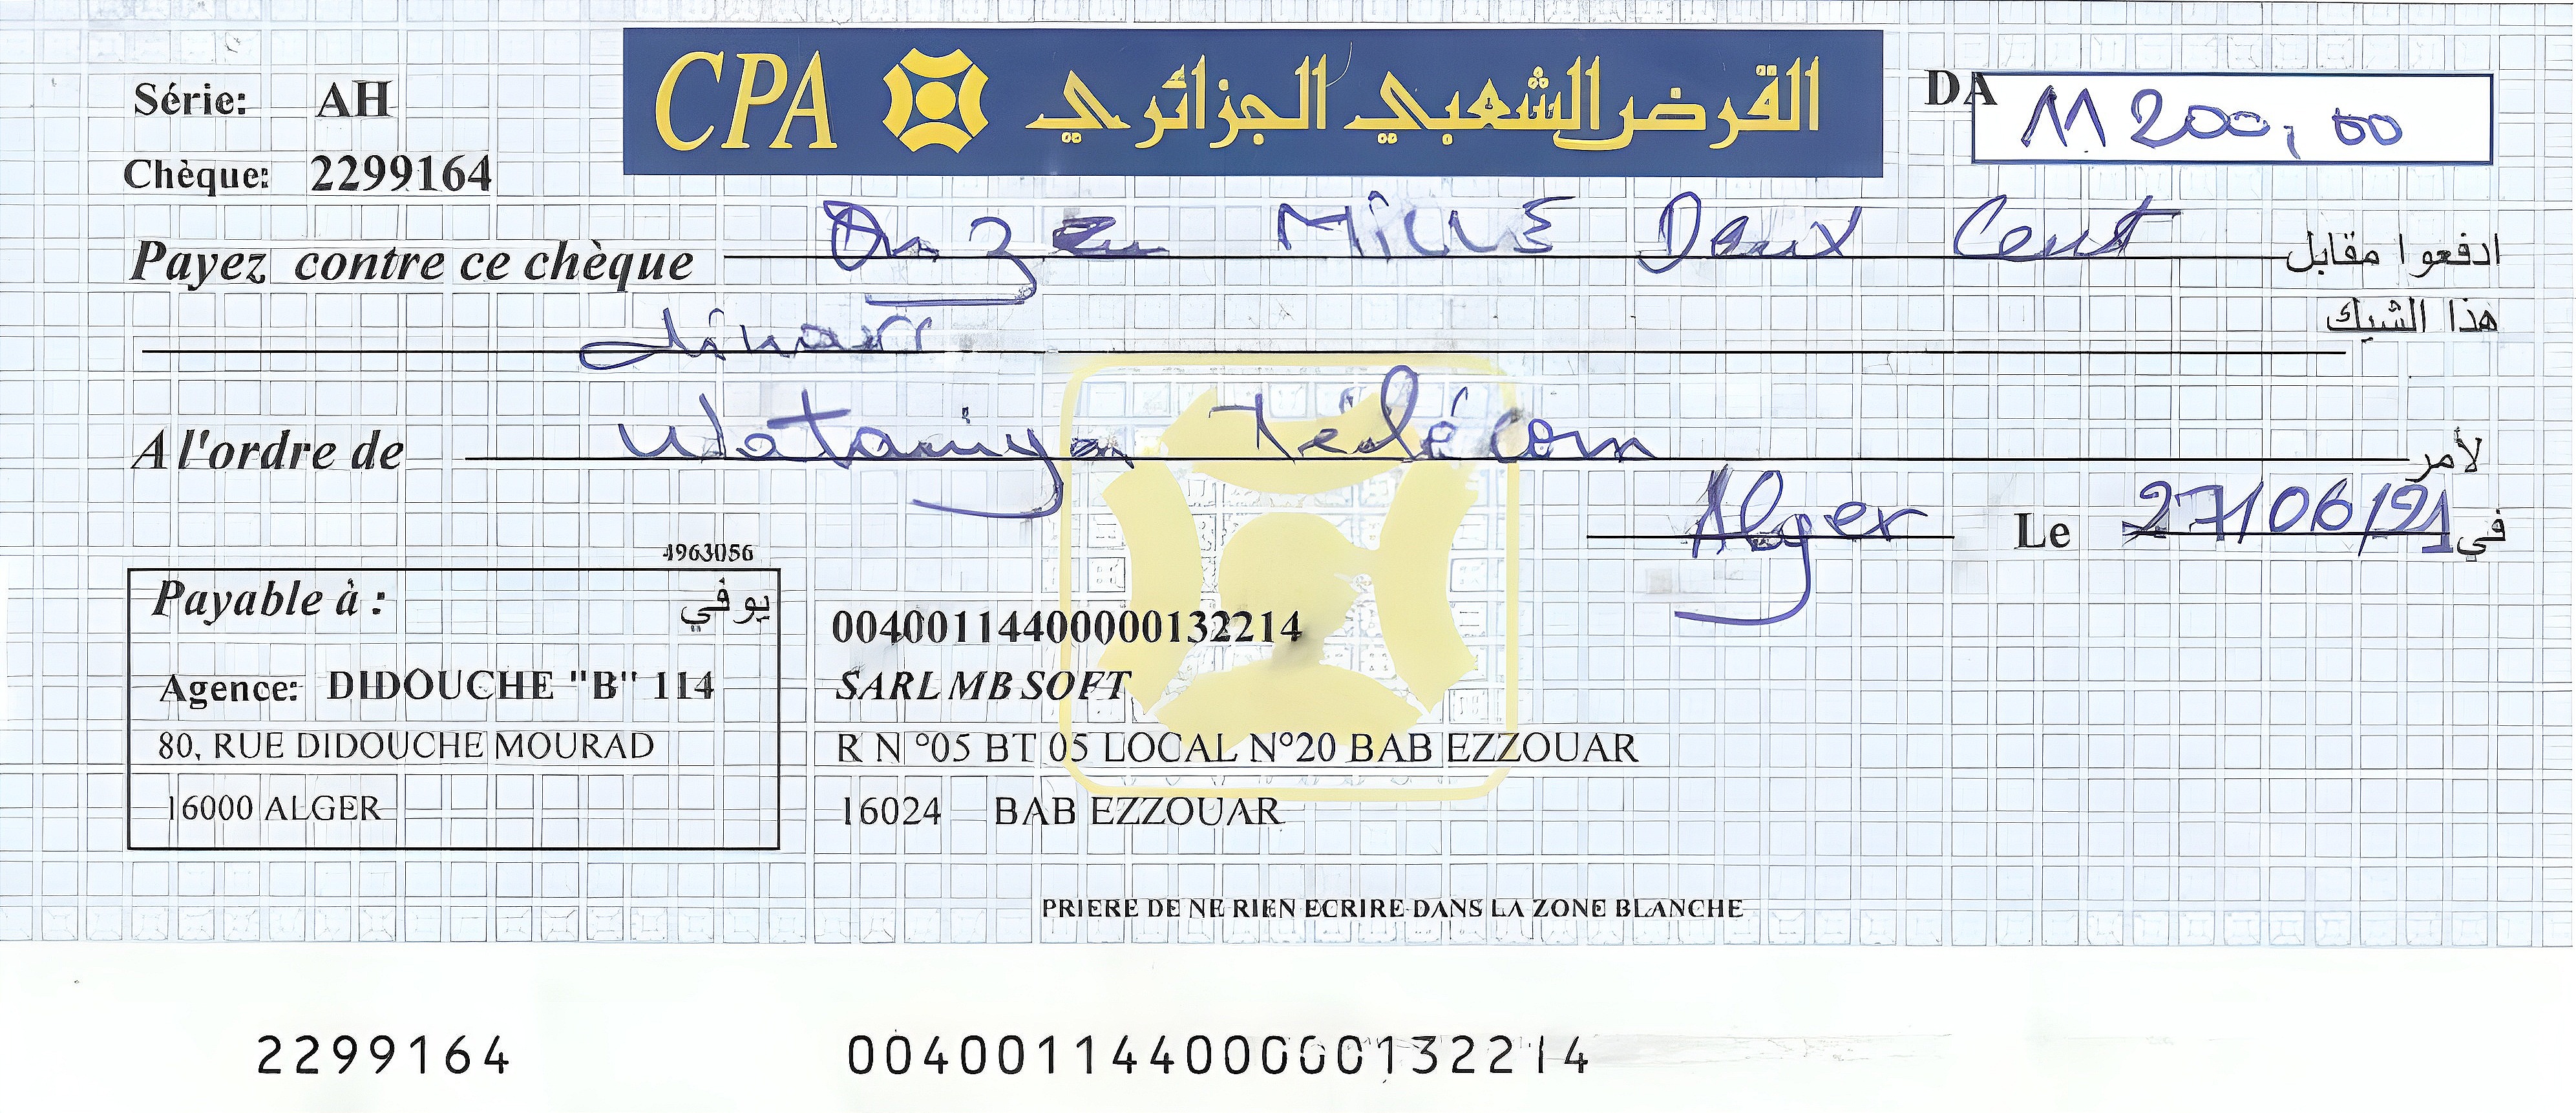 CPA القرض الشعبي الجزائري
Série: AH
DA 11 200,00
Chèque: 2299164
Payez contre ce chèque Onze MILLE Deux Cent ادفعوا مقابل
هذا الشيك
dinars
A l'ordre de Wataniya Télécom لأمر
Alger Le 27/06/21 في
4963056
Payable à : يوفي
Agence: DIDOUCHE "B" 114
80, RUE DIDOUCHE MOURAD
16000 ALGER
00400114400000132214
SARL MB SOFT
R N °05 BT 05 LOCAL N°20 BAB EZZOUAR
16024 BAB EZZOUAR
PRIERE DE NE RIEN ECRIRE DANS LA ZONE BLANCHE
2299164 00400114400000132214